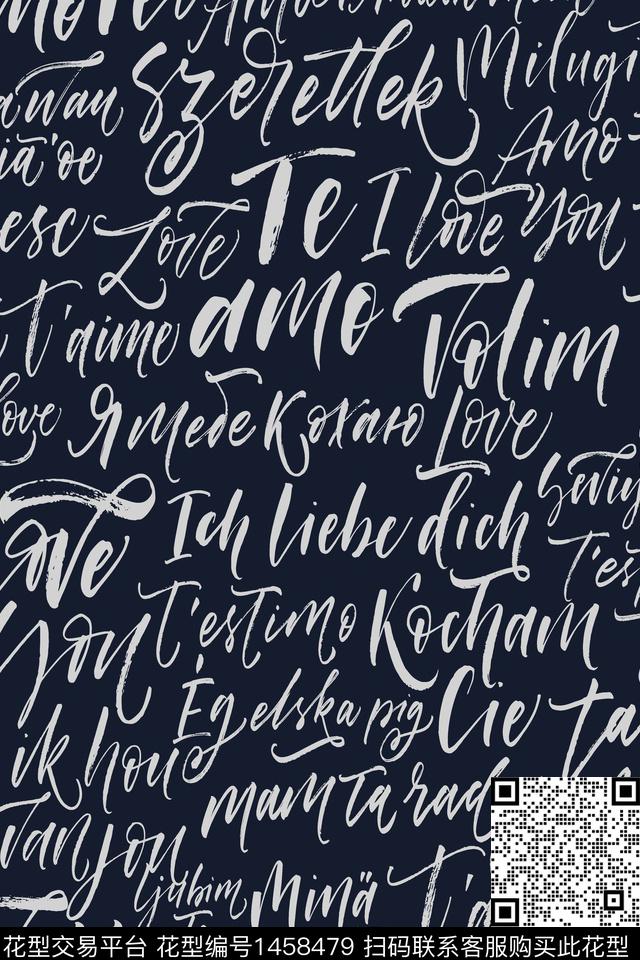 Szeretlek Milugi
Amo
Te I love you
esc Love
t'aime amo Volim
love Я тебе кохаю Love
Ich liebe dich Seviy
Love t'es
you t'estimo Kocham
Ég elska þig Cie ta
ik hou mam ta rad
van jou
ljubim Minä t'a
花型交易平台 花型编号1458479 扫码联系客服购买此花型